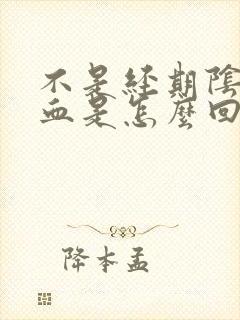 不是經期陰
血是怎麼回
降本孟